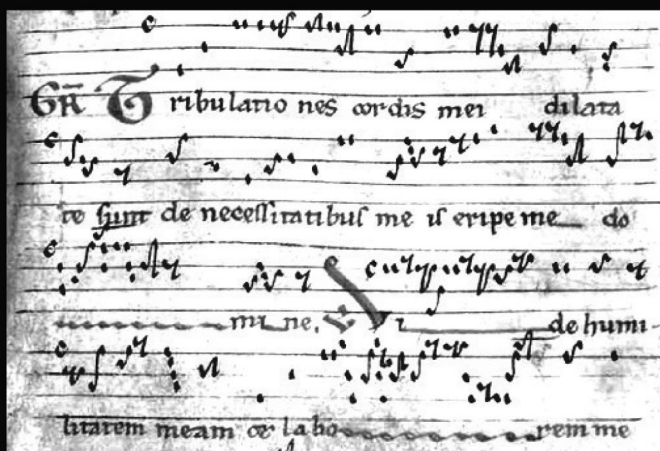 GR Tribulatio nes cordis mei dilata
te sunt de necessitatibus me is eripe me do
mi ne. V Vi de humi
litatem meam et labo rem me